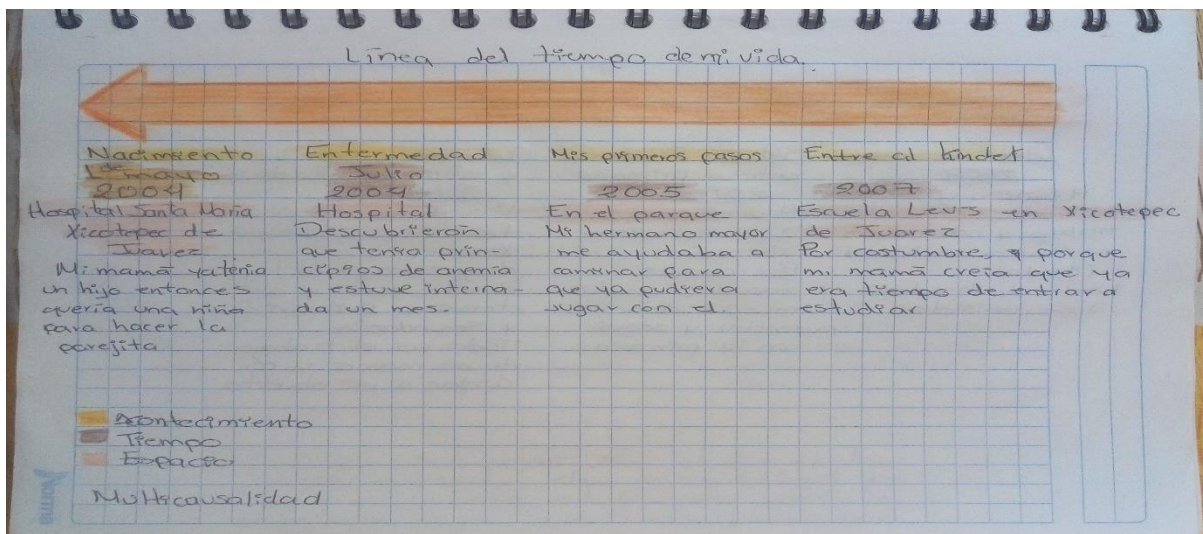 Línea del tiempo de mi vida.
Nacimiento
1º mayo
2004
Hospital Santa María
Xicotepec de
Juárez
Mi mamá ya tenía
un hijo entonces
quería una niña
para hacer la
parejita
Enfermedad
Julio
2004
Hospital
Descubrieron
que tenía prin-
cipios de anemia
y estuve interna-
da un mes.
Mis primeros pasos
2005
En el parque
Mi hermano mayor
me ayudaba a
caminar para
que ya pudiera
jugar con el.
Entre al kinder
2007
Escuela Levs en Xicotepec
de Juárez
Por costumbre y porque
mi mamá creía que ya
era tiempo de entrar a
estudiar
Acontecimiento
Tiempo
Espacio
Multicausalidad
Norma